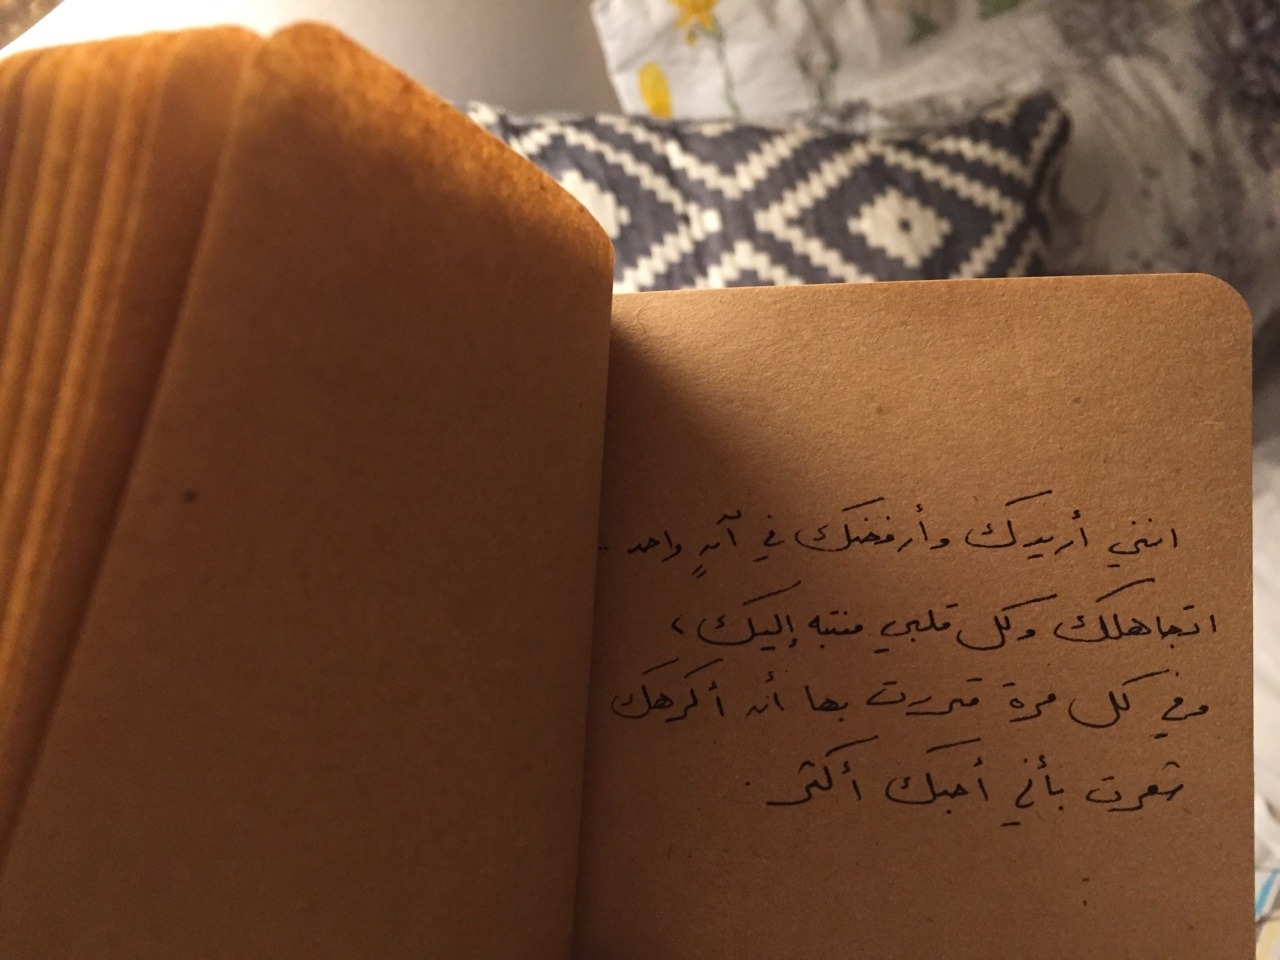 انني أريدك وأرفضك في آنٍ واحد ..
اتجاهلك وكل قلبي منتبه إليك ،
وفي كل مرة قررت بها أن أكرهك
شعرت بأني أحبك أكثر .